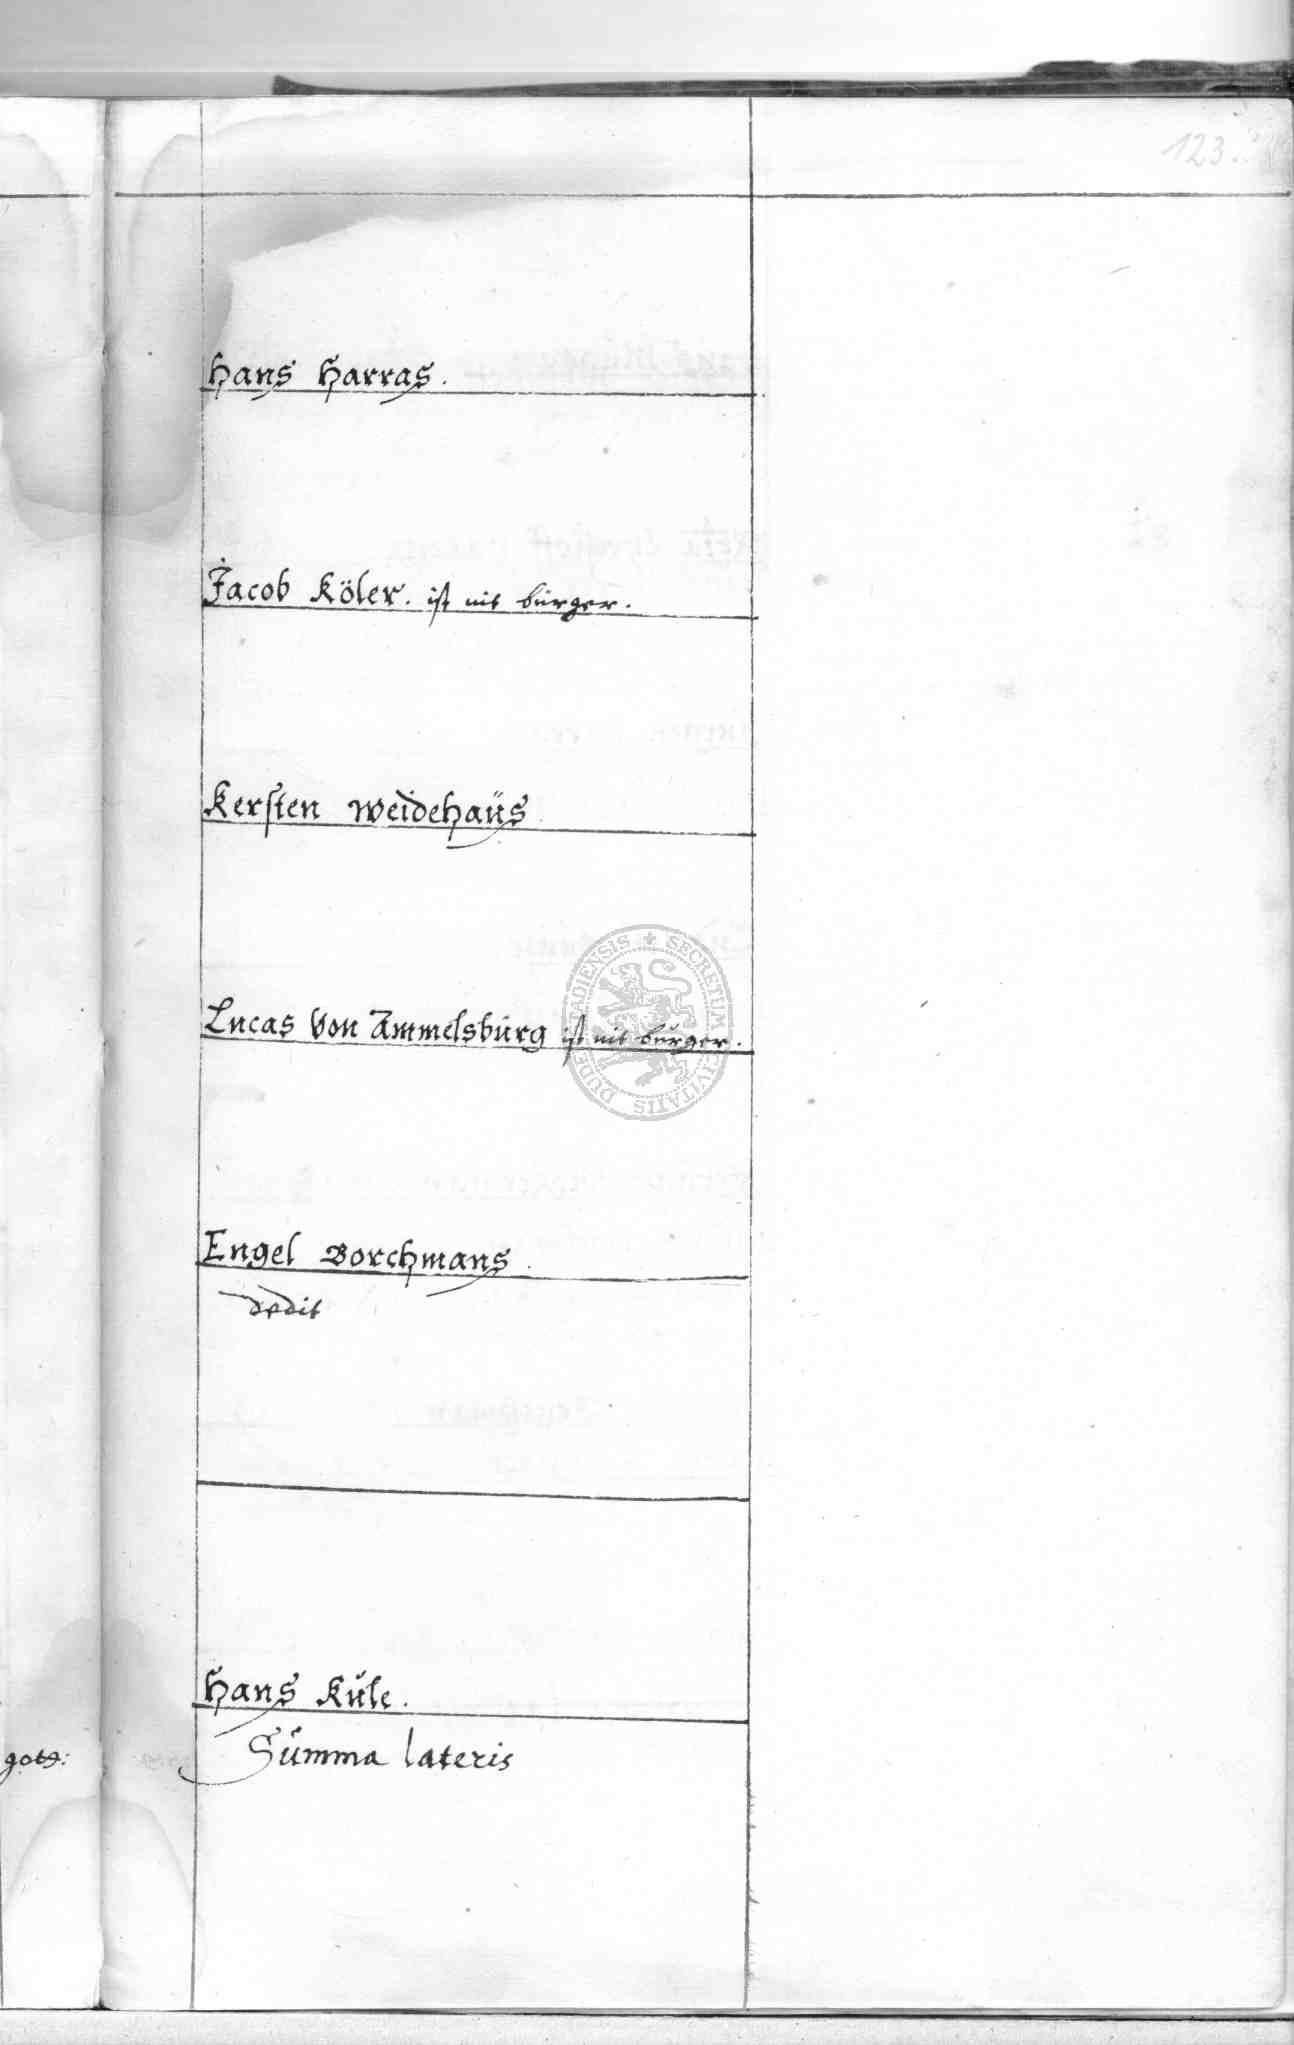 123.
Hans Harras.
Jacob Köler. ist nit bürger.
Kersten Weidehaüs
Lucas Von Ammelsbürg ist nit bürger.
Engel Borchmans.
dedit
Hans Küle.
Sümma lateris
SECRETUM CIVITATIS DUDERSTADIENSIS